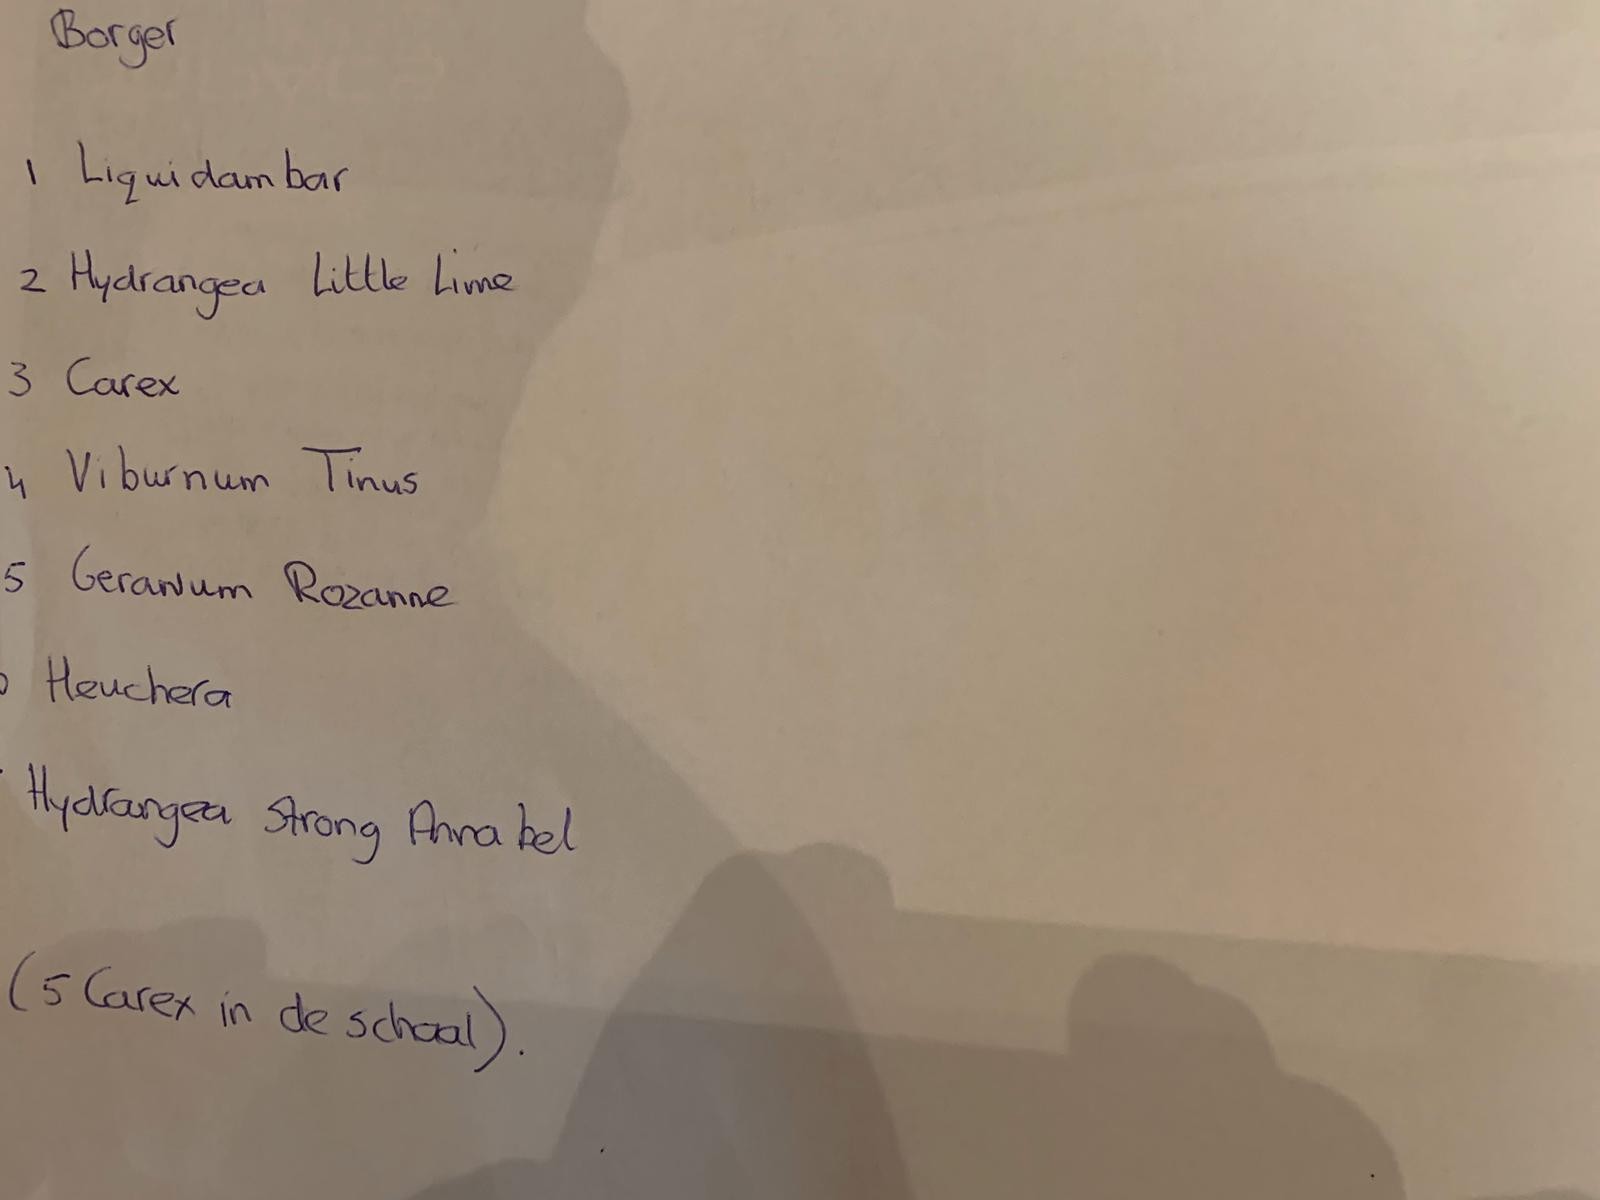 Borger
1 Liquidambar
2 Hydrangea Little Lime
3 Carex
4 Viburnum Tinus
5 Geranium Rozanne
Heuchera
Hydrangea Strong Annabel
(5 Carex in de schaal).